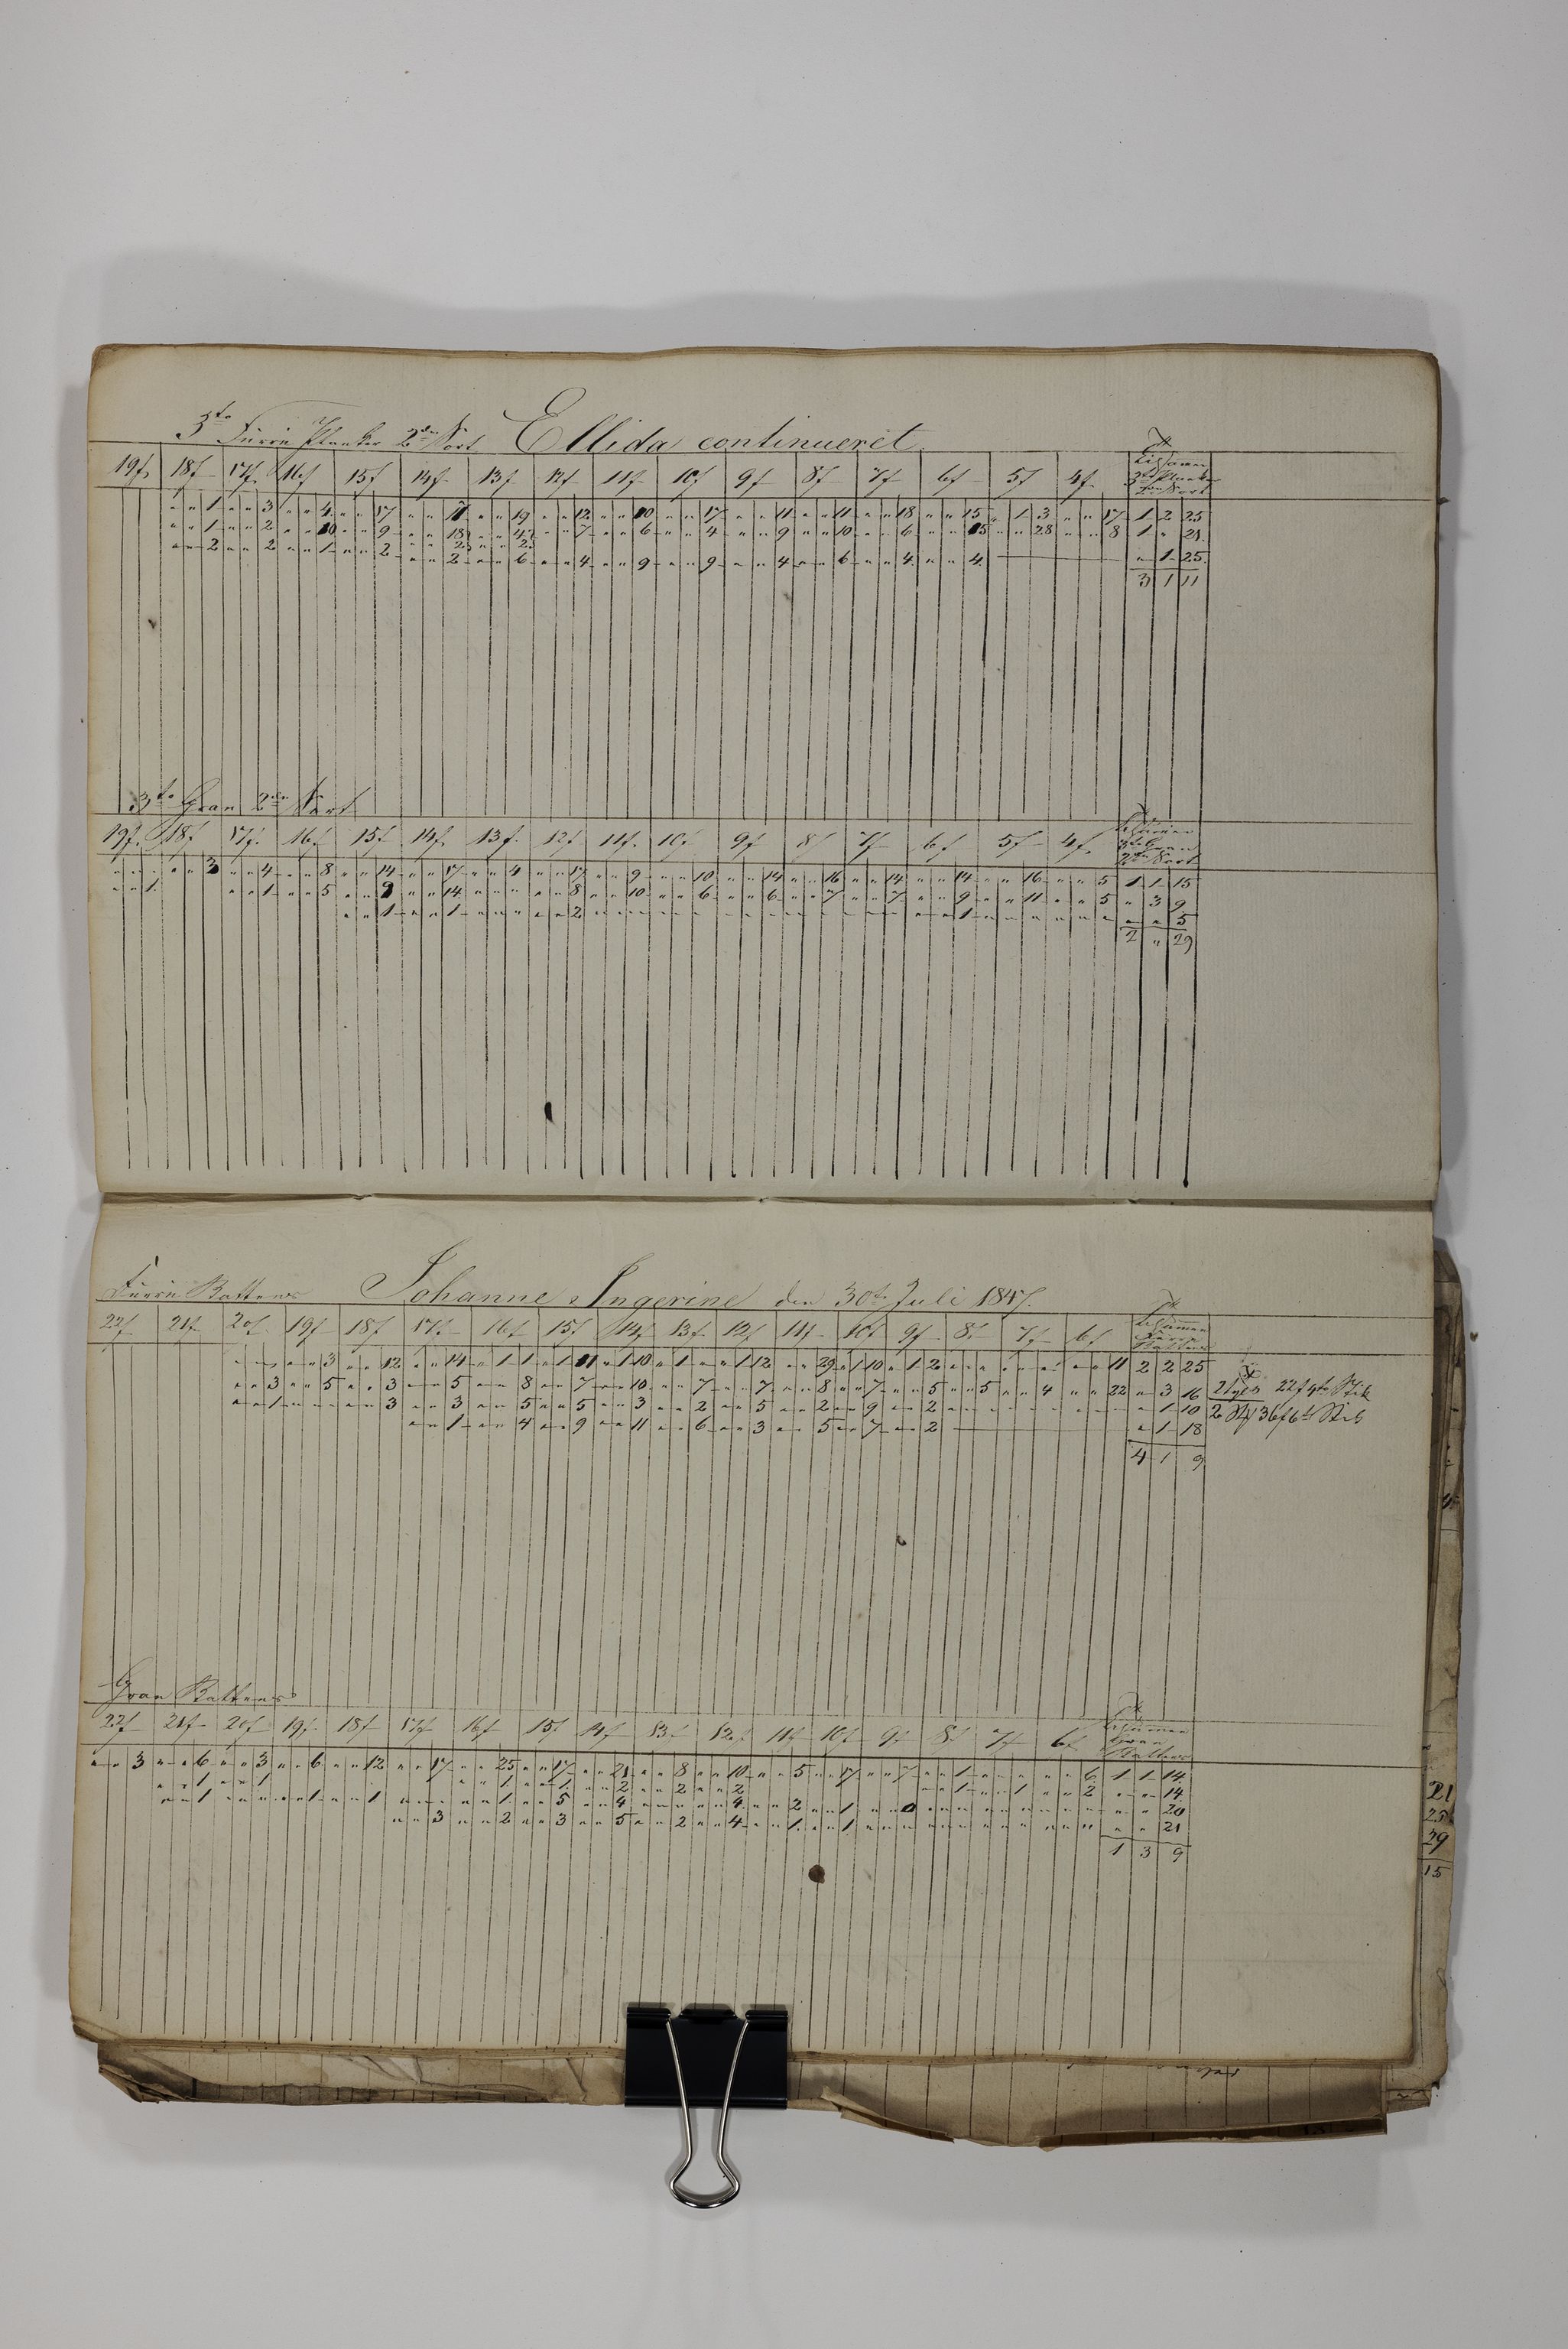 3te Furru Planker 2den Sort Ellida continueret
19f 18f 17f 16f 15f 14f 13f 12f 11f 10f 9f 8f 7f 6f 5f 4f Tilsammen 3te Planker 2den Sort
" " 1 " " 3 " " 4 " " 17 " " 11 " " 19 " " 12 " " 10 " " 17 " " 11 " " 11 " " 18 " " 15 " 1 3 " " 17 1 2 25
" " 1 " " 2 " " 10 " " 9 " " 18 " " 4 " " 7 " " 6 " " 4 " " 9 " " 10 " " 6 " " 15 " " 28 " " 8 1 " 21
" " 2 " " 2 " " 1 " " 2 " " 2 " " 2
" " 2 " " 6 " " 4 " " 9 " " 9 " " 4 " " 6 " " 4 " " 4 " 1 25
3 1 11
3te Gran 2den Sort
19f 18f 17f 16f 15f 14f 13f 12f 11f 10f 9f 8f 7f 6f 5f 4f Tilsammen 3te Gran 2den Sort
" " " " " 3 " " 4 " " 8 " " 14 " " 17 " " 4 " " 17 " " 9 " " 10 " " 14 " " 16 " " 14 " " 14 " " 16 " " 5 1 1 15
" " 1 " " 1 " " 5 " " 9 " " 14 " " " " " 8 " " 10 " " 6 " " 6 " " 7 " " 7 " " 9 " " 11 " " 5 " 3 9
" " 1 " " 1 " " " " " 2 " " " " " " " " " " " " " " " " " 1 " " " " " " " " 5
2 " 29
Furru Battens Johanne Ingerine den 30te Juli 1847.
22f 21f 20f 19f 18f 17f 16f 15f 14f 13f 12f 11f 10f 9f 8f 7f 6f Tilsammen Furru Battens
" " " " " 3 " " 12 " " 14 " 1 1 " 1 11 " 1 10 " 1 " " 1 12 " " 29 " 1 10 " 1 2 " " " " " " " " 11 2 2 25
" " 3 " " 5 " " 3 " " 5 " " 8 " " 7 " " 10 " " 7 " " 7 " " 8 " " 7 " " 5 " " 5 " " 4 " " 22 " 3 16 22f 4to Stik
" " 1 " " " " " 3 " " 3 " " 5 " " 5 " " 3 " " 2 " " 5 " " 2 " " 9 " " 2 " " " " " " " " " " 1 10 2
" " 1 " " 4 " " 9 " " 11 " " 6 " " 3 " " 5 " " 7 " " 2 " 1 18
4 1 9
Gran Battens
22f 21f 20f 19f 18f 17f 16f 15f 14f 13f 12f 11f 10f 9f 8f 7f 6f Tilsammen Gran Battens
" " 3 " " 6 " " 3 " " 6 " " 12 " " 17 " " 25 " " 17 " " 21 " " 8 " " 10 " " 5 " " 17 " " 7 " " 1 " " " " " 6 1 1 14
" " 1 " " 1 " " 1 " " 1 " " 2 " " 2 " " 2 " " 1 " " 1 " " 2 " " 14
" " 1 " " " " " 1 " " 1 " " " " " 1 " " 5 " " 4 " " " " " 4 " " 2 " " 1 " " 0 " " " " " " " " " " " 20
" " 3 " " 2 " " 3 " " 5 " " 2 " " 4 " " 1 " " 1 " " " " " " " " " " " " " " 21
1 3 9
21
25
29
15